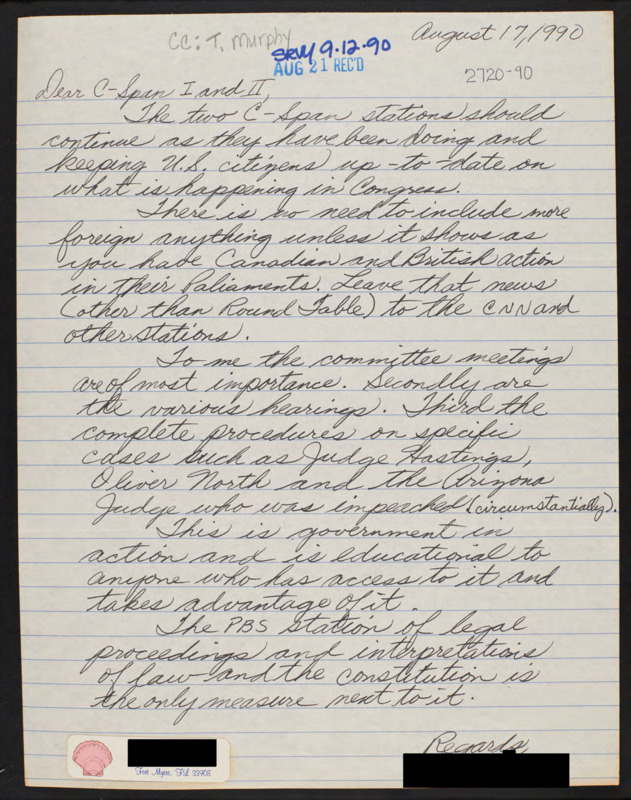 CC: T. Murphy
SRW 9-12-90
August 17, 1990
AUG 21 REC'D
2720-90
Dear C-Span I and II,
The two C-Span stations should
continue as they have been doing and
keeping U.S. citizens up-to-date on
what is happening in Congress.
There is no need to include more
foreign anything unless it shows as
you have Canadian and British action
in their Paliaments. Leave that news
(other than Round Table) to the CNN and
other stations.
To me the committee meetings
are of most importance. Secondly are
the various hearings. Third the
complete procedures on specific
cases such as Judge Hastings,
Oliver North and the Arizona
Judge who was impeached (circumstantially).
This is government in
action and is educational to
anyone who has access to it and
takes advantage of it.
The PBS station of legal
proceedings and interpretations
of law and the constitution is
the only measure next to it.
Regards,
Fort Myers, Fld 33908